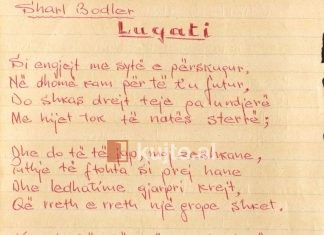 Sharl Bodler
Lugati
Si engjejt me sytë e përskuqur,
Në dhomë kam për të t'u futur,
Do shkas drejt teje pa lundjerë
Me hijet tok të natës sterrë;
Dhe do të të jap,
kujto.al
Puthje të ftohta si prej hane
Dhe ledhatime gjarpri krejt,
Që rreth e rreth një grope shket.